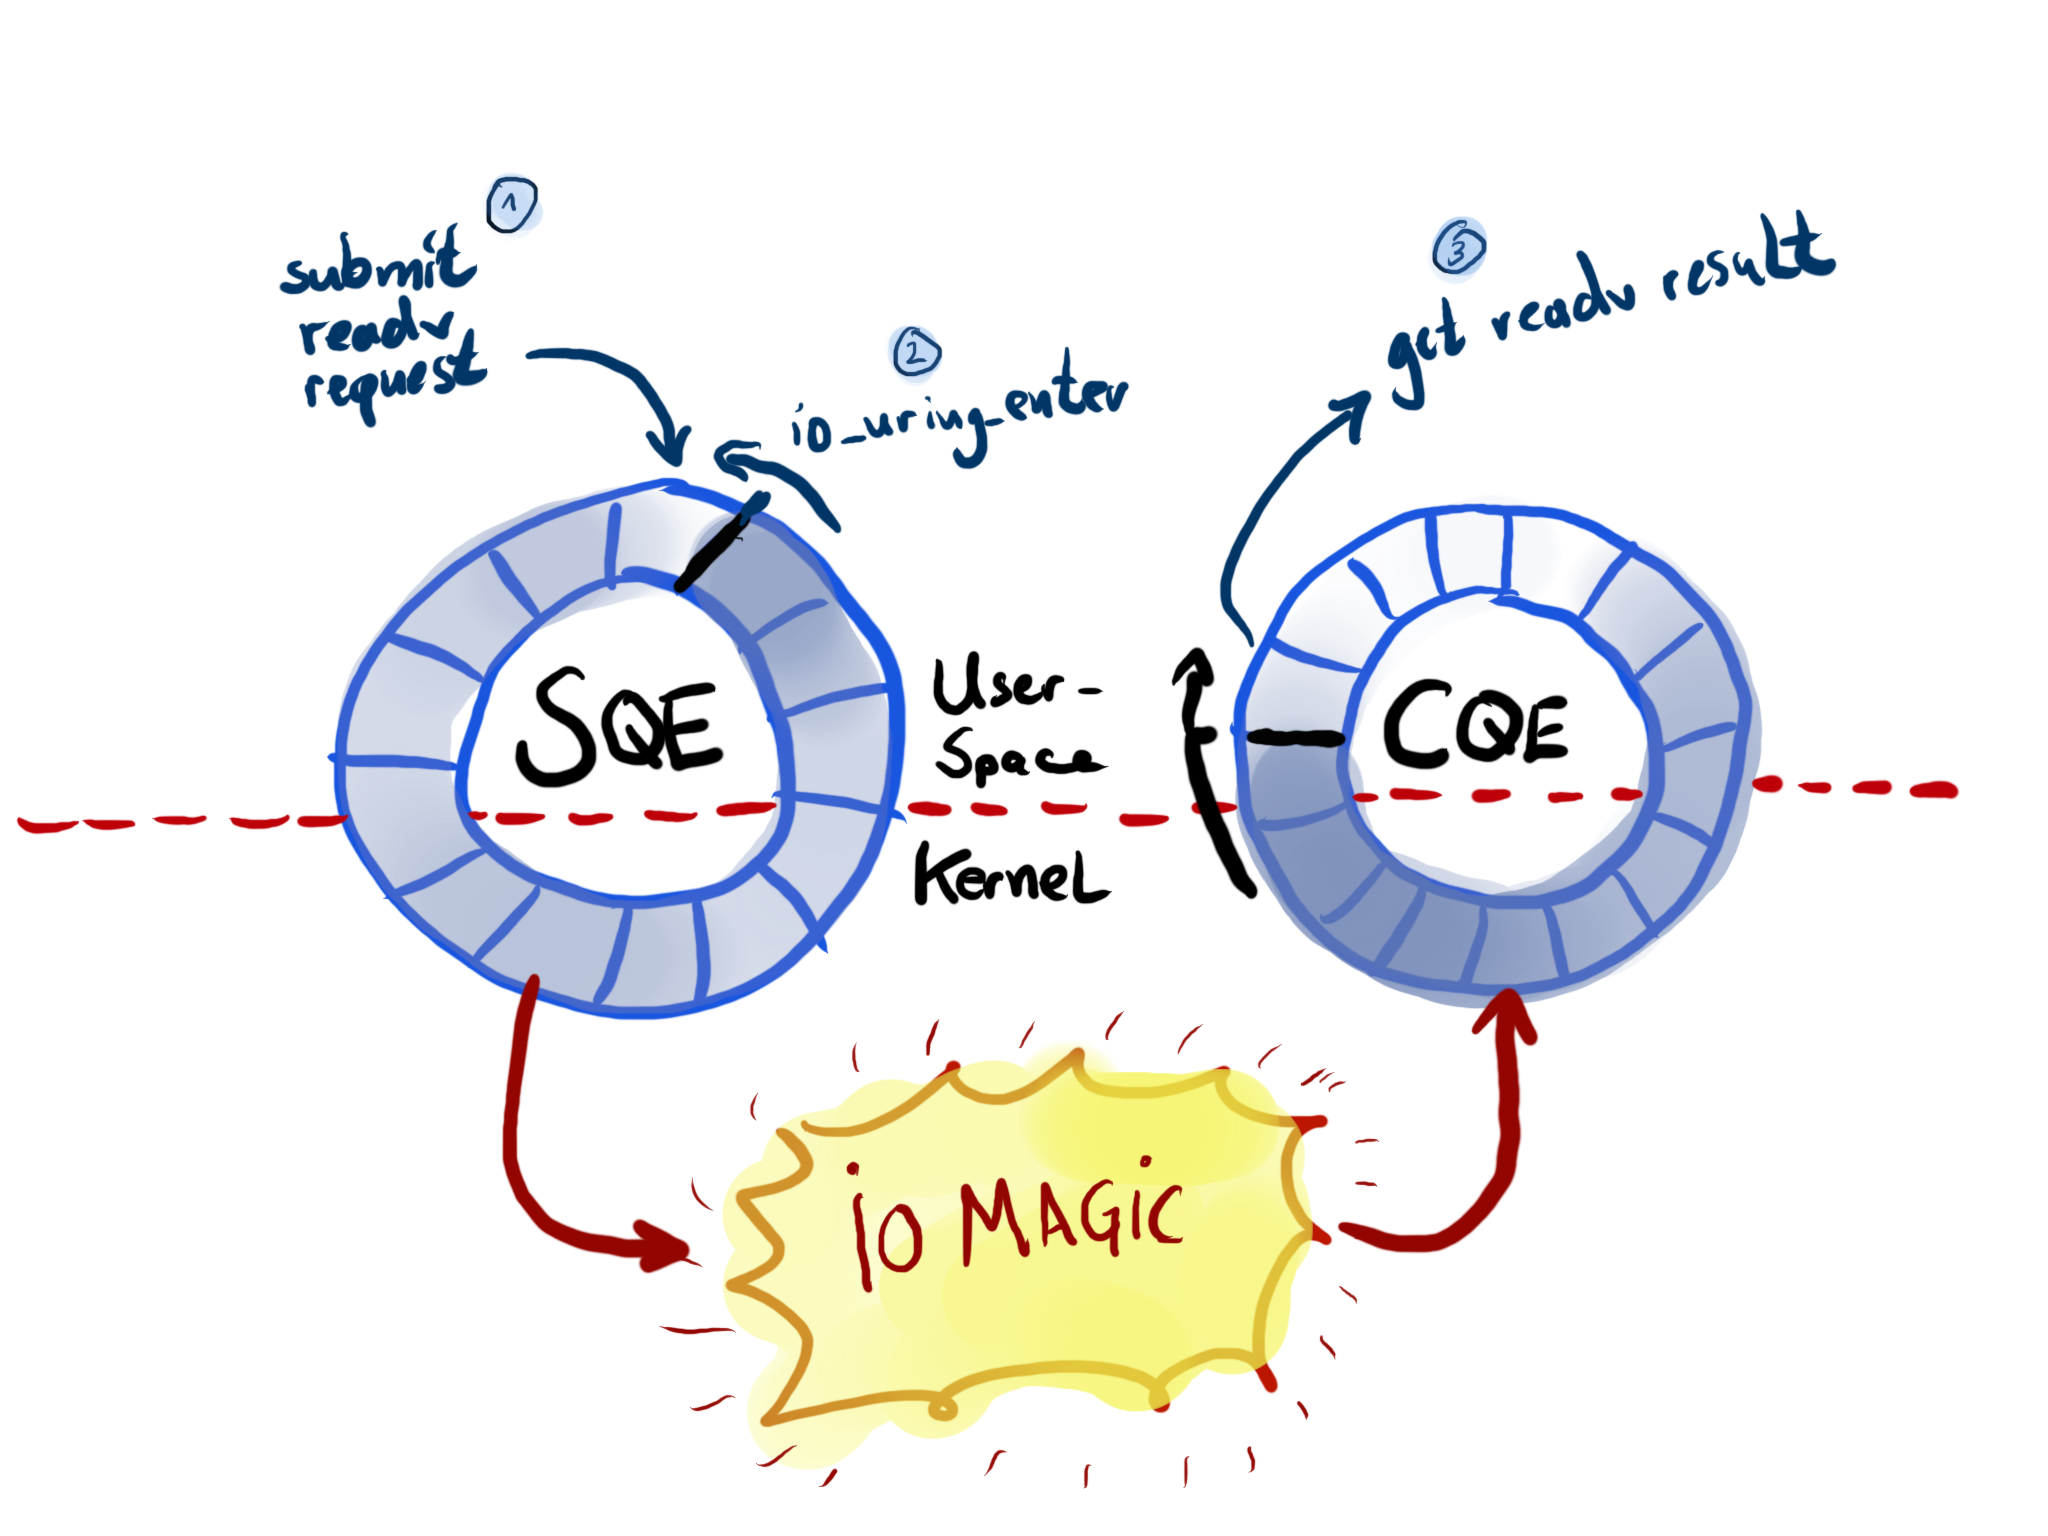 1
submit
readv
request
2
io_uring_enter
3
get readv result
SQE
User-
Space
Kernel
CQE
io MAGiC